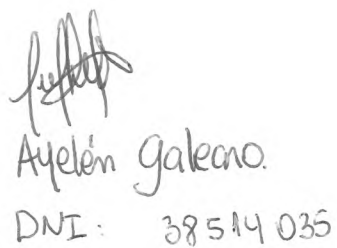 Ayelén Galeano.
DNI: 38514035